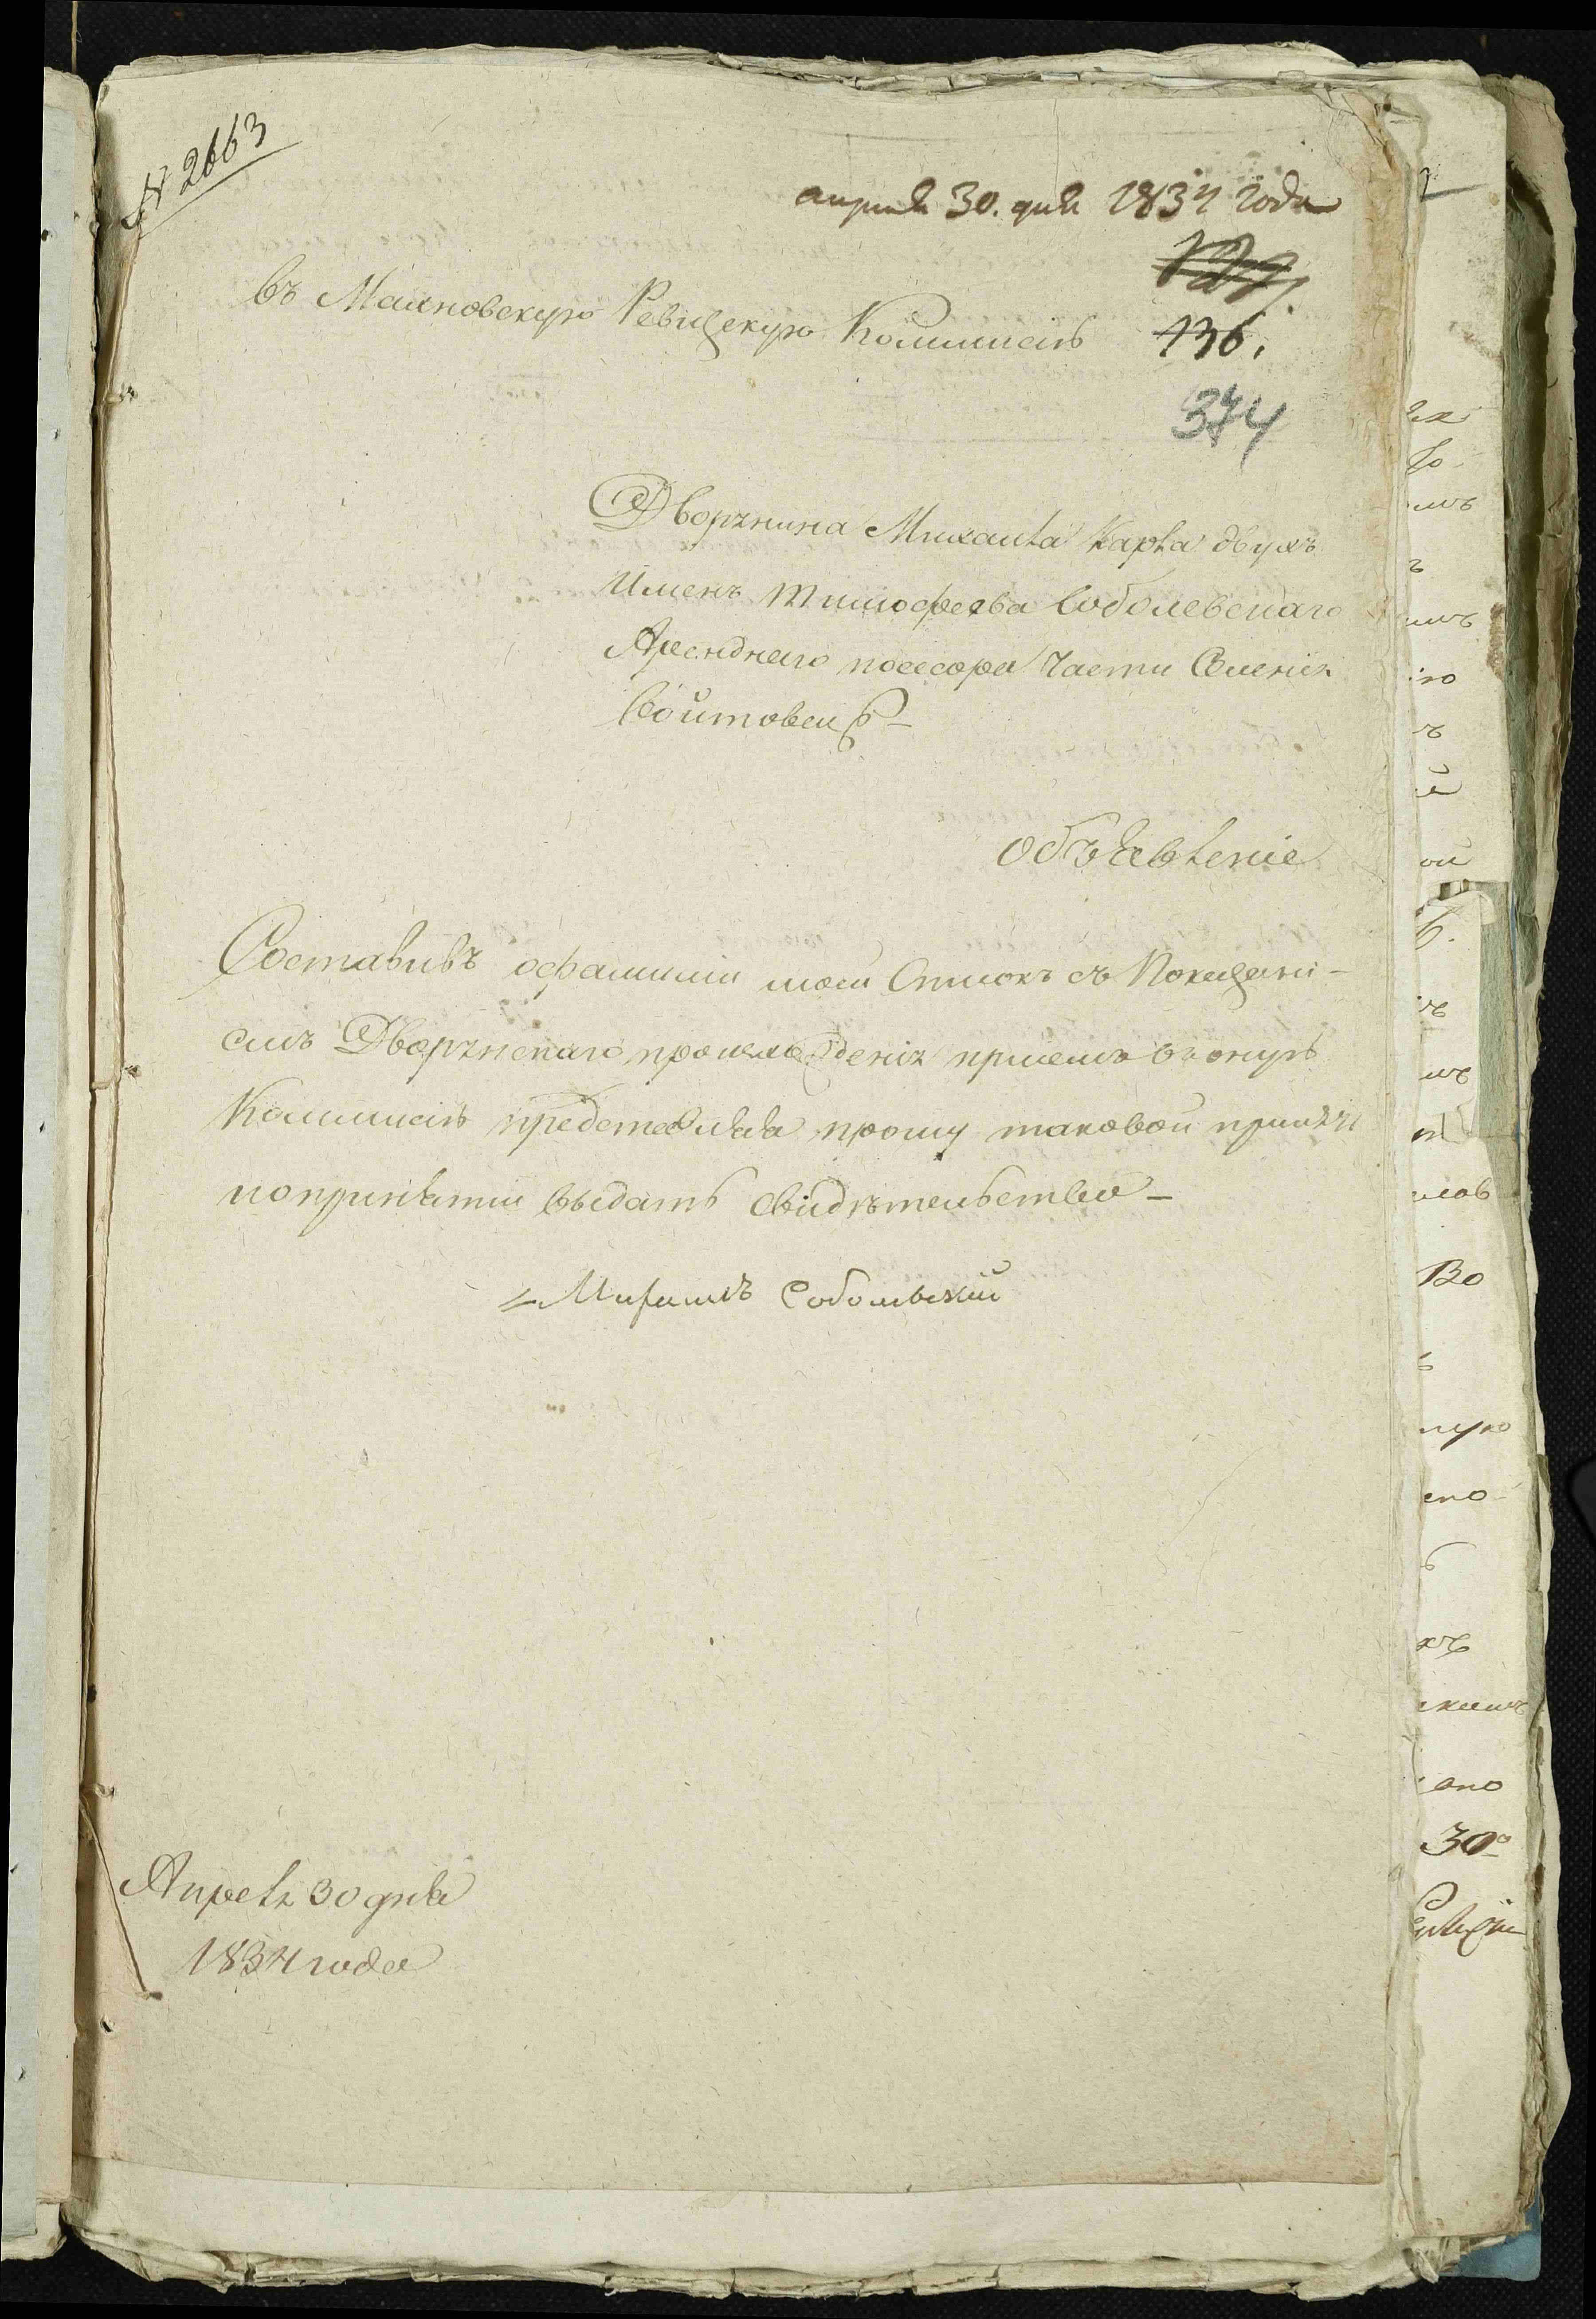 N 2663
апреля 30. дня 1834 года
136.
374
въ Махновскую Ревизскую Коммисию
Дворянина Михаила Карла двухъ
Именъ Тимофеева Соболевскаго
Аренднаго посесора Части Селения
Войтовецъ
объявление
Составивъ офамилии моей Списокъ съ показани-
емъ Дворянскаго произхождения присемъ въ оную
Коммисию представляя прошу таковой принять
ипопринятии выдать свидѣтельство
Михаилъ Соболевский
Апреля 30 дня
1834 года